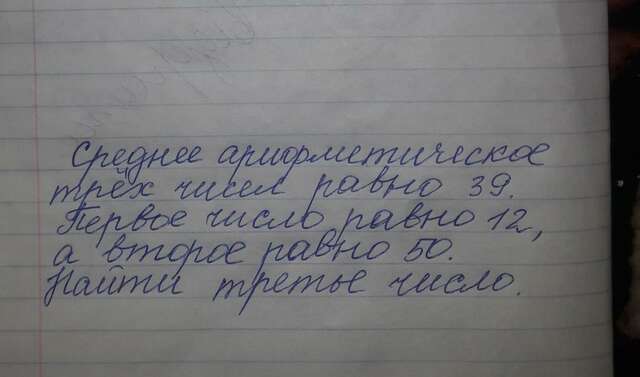 Среднее арифметическое
трёх чисел равно 39.
Первое число равно 12,
а второе равно 50.
Найти третье число.